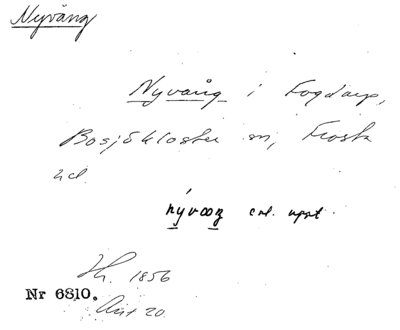 Nyvång
Nyvång i Fogdarp,
Bosjökloster sn, Frosta
hd
nývɷŋ enl. uppt.
Hr. 1856
Nr 6810.
20.